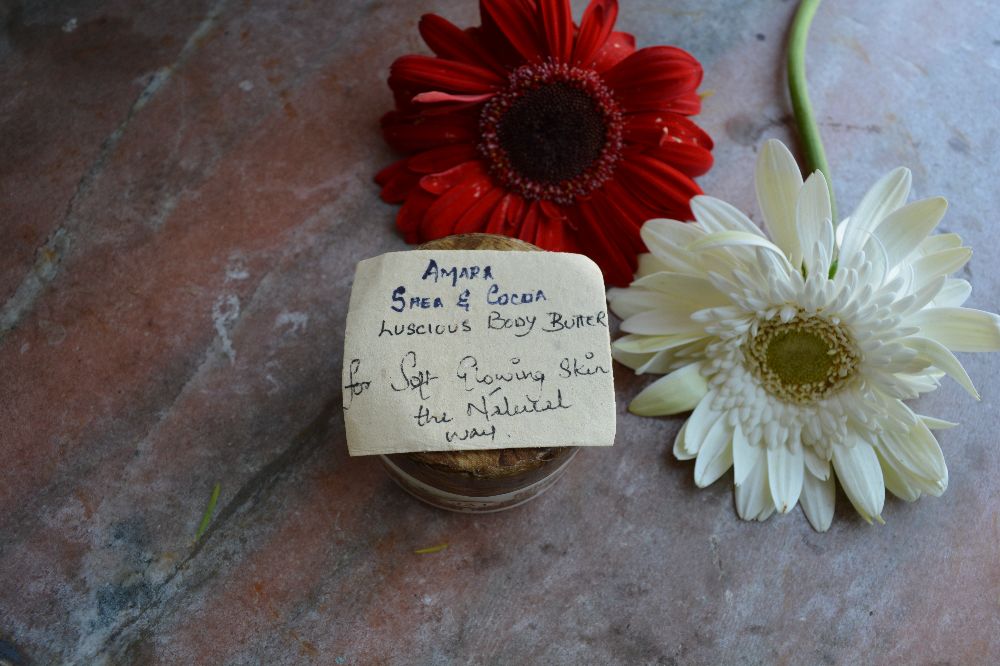 AMARA
SHEA & COCOA
LUSCIOUS BODY BUTTER
for Soft Glowing Skin
the Natural
way.